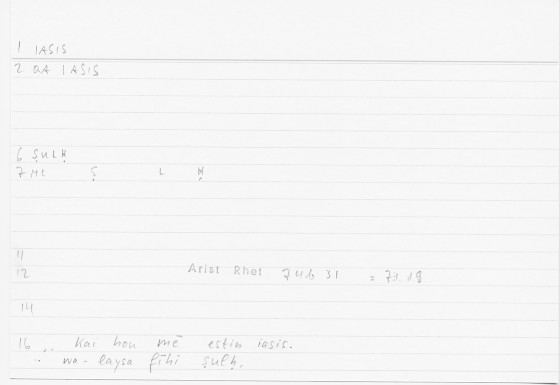 1 IASIS
2 QA IASIS
6 ṢULḤ
7 ML Ṣ L Ḥ
11
12 Arist Rhet 74b 31 = 73.18
14
16 .. kai hou mē estin iasis.
.. wa-laysa fīhi ṣulḥ.